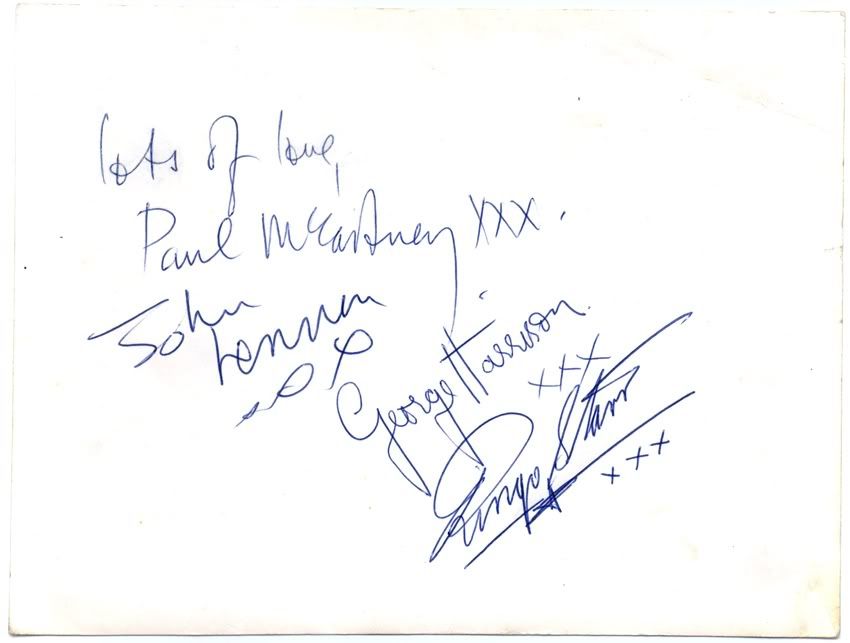 lots of love,
Paul McCartney XXX.
John
Lennon
X
George Harrison.
+++
Ringo Starr
+++